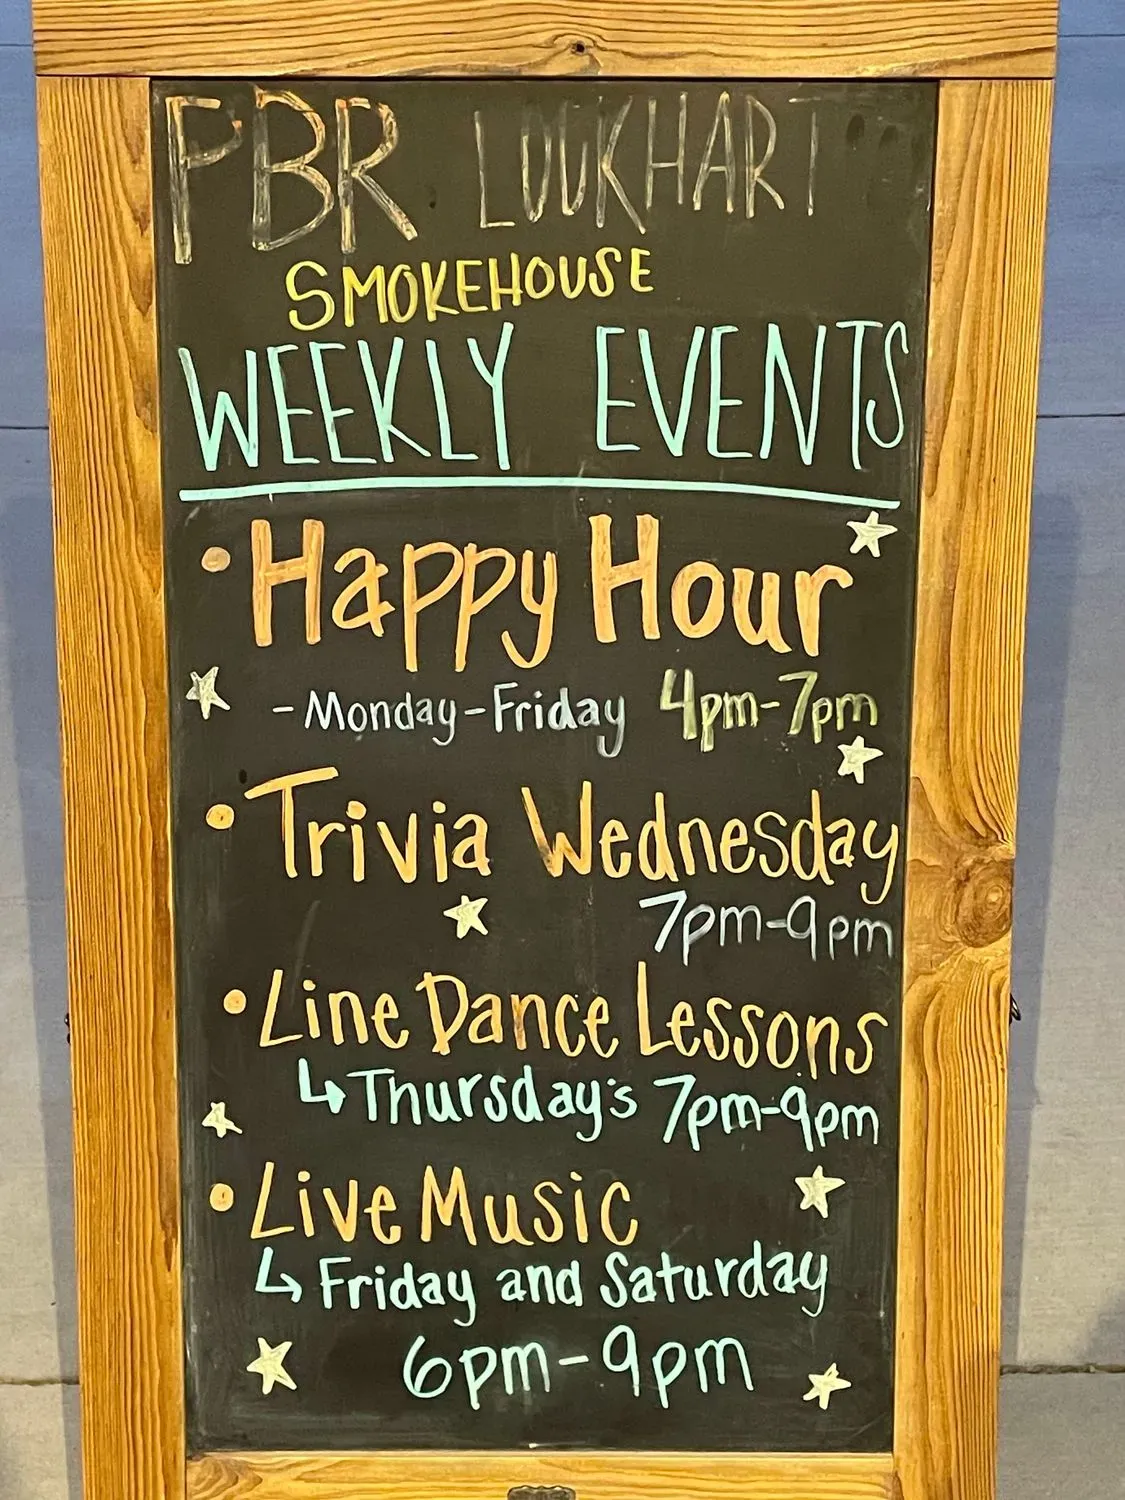 PBR LOCKHART
SMOKEHOUSE
WEEKLY EVENTS
• Happy Hour
- Monday - Friday 4pm-7pm
• Trivia Wednesday
7pm-9pm
• Line Dance Lessons
↳ Thursday's 7pm-9pm
• Live Music
↳ Friday and Saturday
6pm-9pm